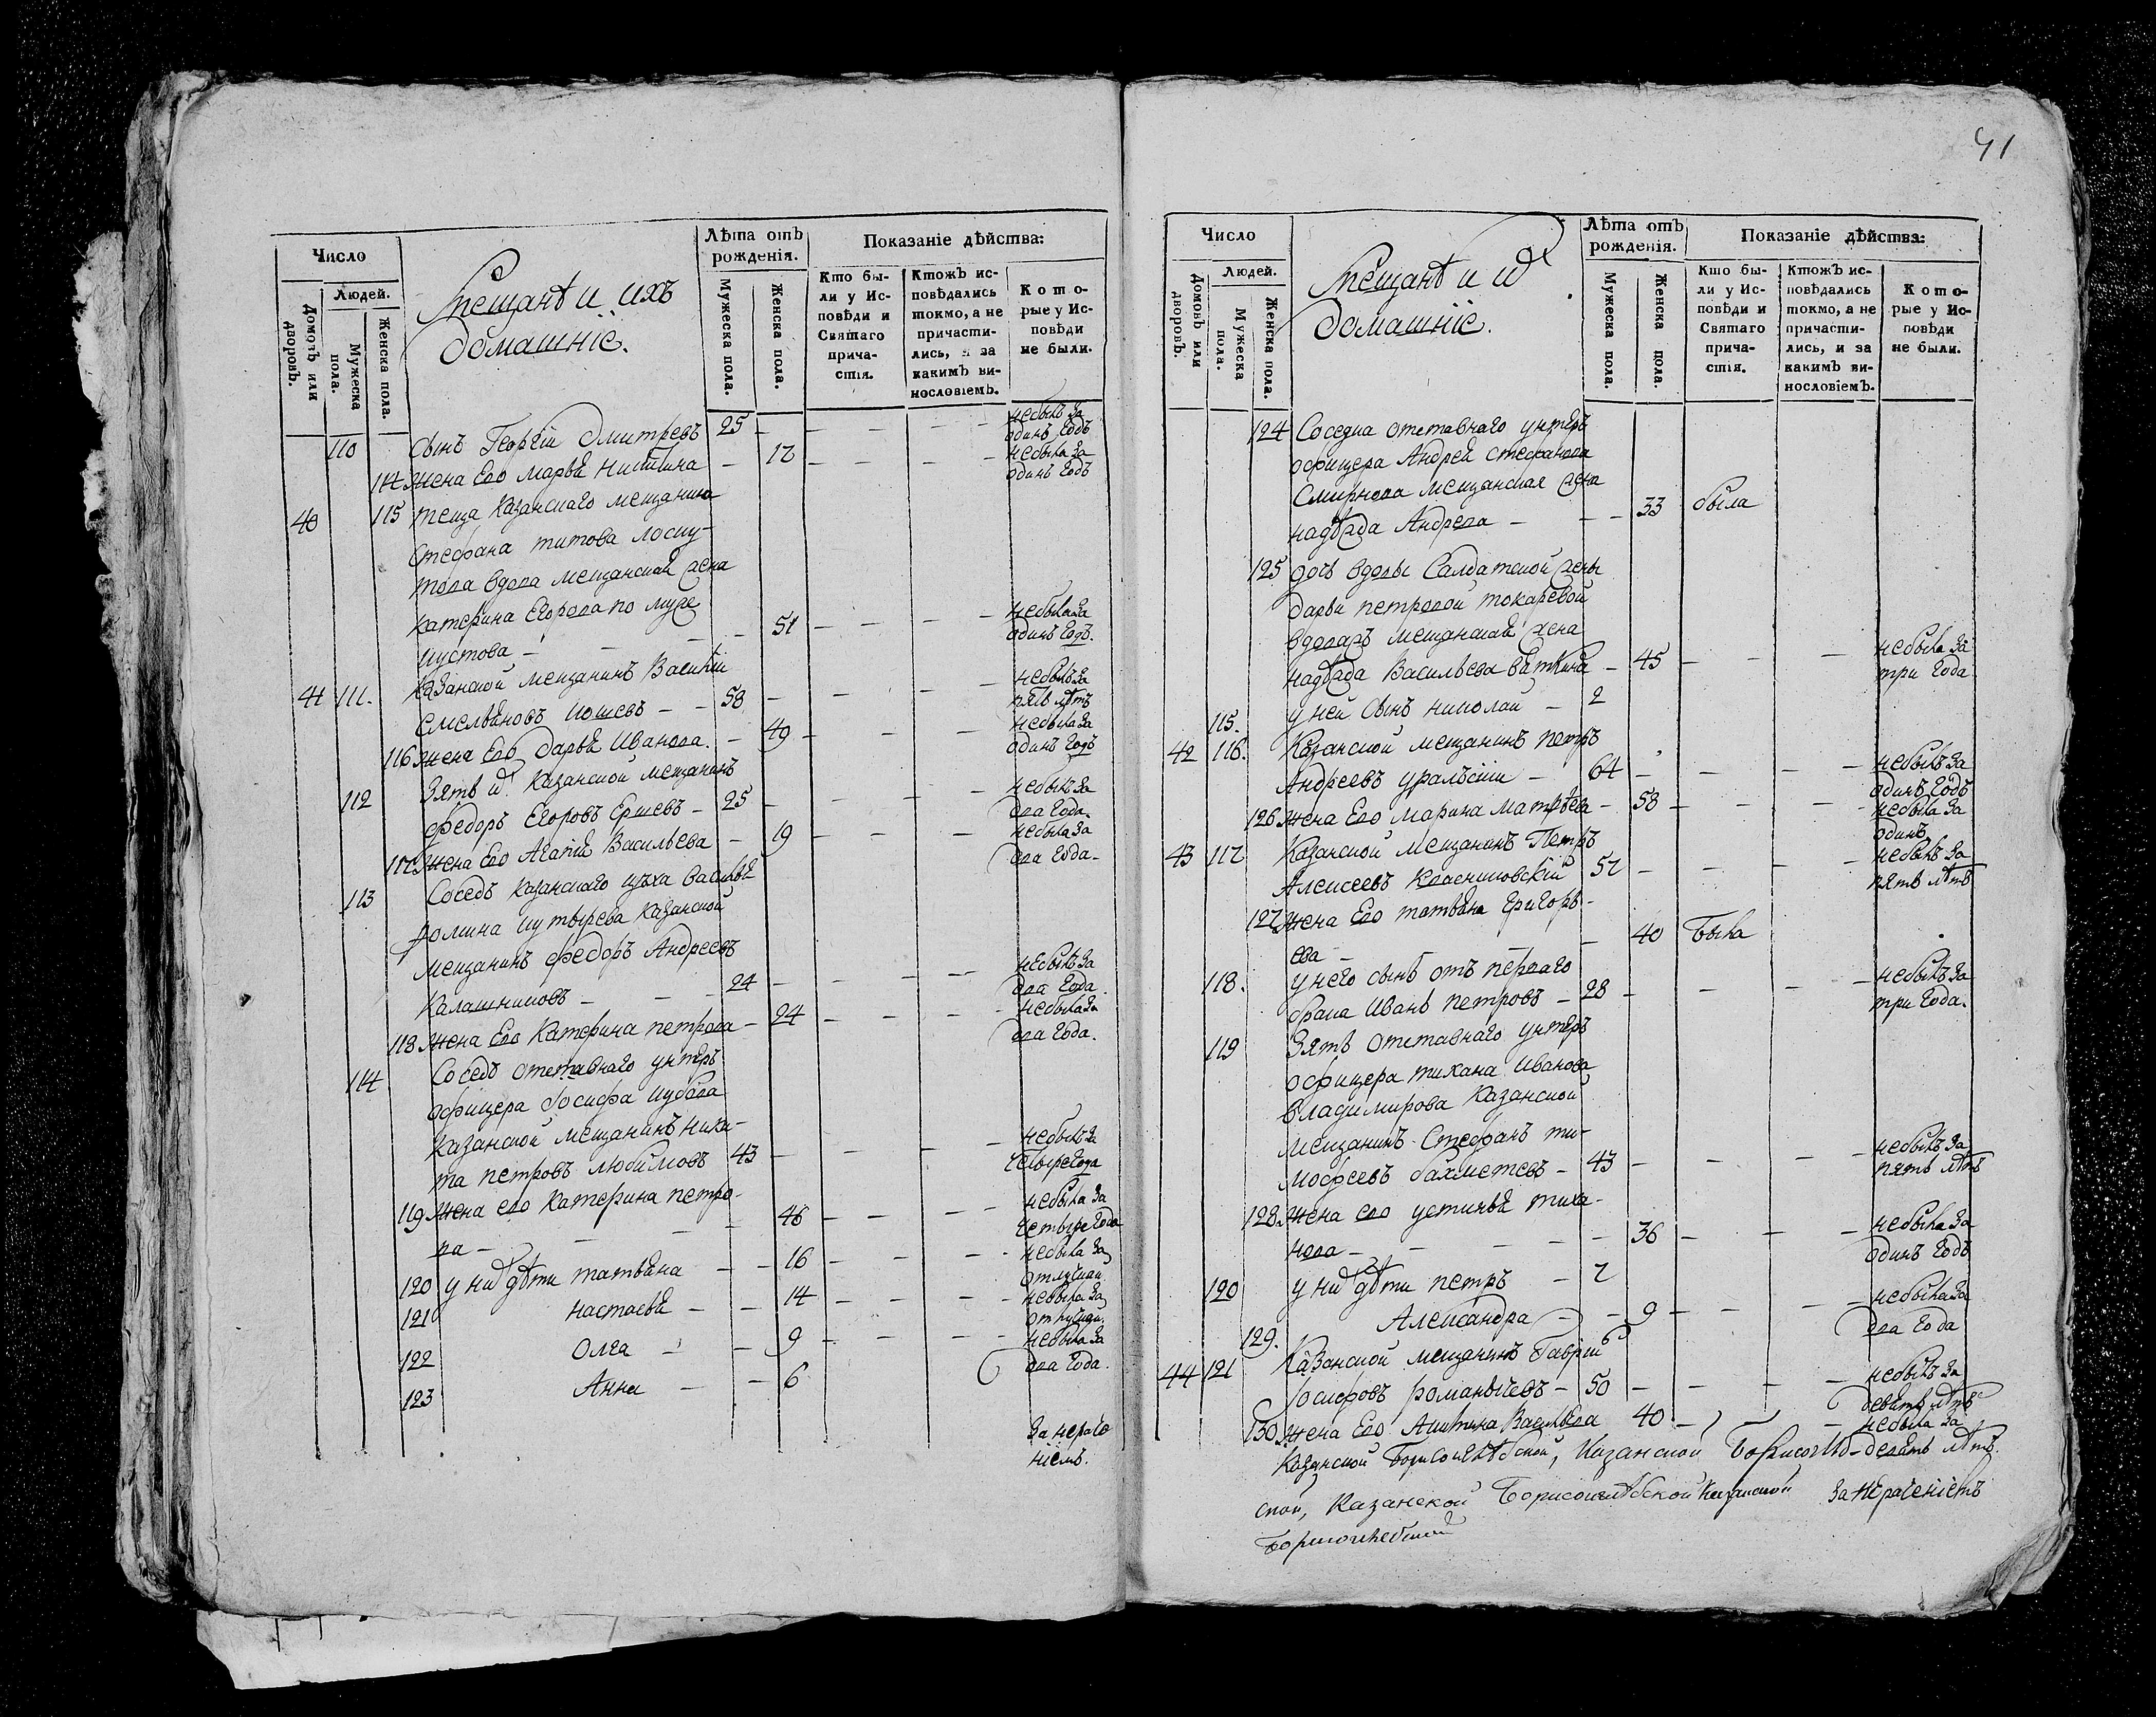 41
Число
Людей.
Домовъ или дворовъ.
Мужеска пола.
Женска пола.
Мещанѣ и ихъ
домашніе.
Лѣта отъ рожденія.
Мужеска пола.
Женска пола.
Показаніе дѣйства:
Кто бы-
ли у Ис-
повѣди и
Святаго
прича-
стія.
Ктожъ ис-
повѣдались
токмо, а не
причасти-
лись, и за
какимъ ви-
нословіемъ.
Кото-
рые у Ис-
повѣди
не были.
110 Сынъ Георгій Дмитревъ 25 — — — небылъ за одинъ годъ
114 Жена Его Марья Никитина — 17 — — — небыла за одинъ годъ
40 115 теща Казанскаго мещанина
Стефана титова лоску-
това вдова мещанская жена
катерина Егорова по муже
кустова — — — 51 — — — небыла за одинъ годъ.
41 111. Казанской мещанинъ Василій
Емельяновъ — — 58 — — — небылъ за пять лѣтъ
116 Жена Его Дарья Иванова. — 49 — — — небыла за одинъ годъ
112 Зять их Казанской мещанинъ
Федоръ Егоровъ Ершевъ — 25 — — — небылъ за два года.
117 Жена Его Агафья Васильева — 19 — — — небыла за два года.
113 Соседъ казанскаго цѣха Василья
Фомина кутырева Казанской
мещанинъ Федоръ Андреевъ
Калашниковъ — — — 24 — — — небылъ за два года.
118 Жена Его Катерина петрова — 24 — — — небыла за два года.
114 Соседъ отставнаго унтеръ
офицера Іосифа
Казанской мещанинъ Ники-
та петровъ любимовъ 43 — — — небылъ за четыре года
119 Жена его катерина петро-
ва — — — — 46 — — — небыла за четыре года
120 у них дѣти татьяна — — 16 — — — небыла за отлучкой
121 настасья — — 14 — — — небыла за отлучкой.
122 Олга — — 9 — — — небыла за два года.
123 Анна — — 6
за нераче
ніемъ.
Число
Людей.
Домовъ или дворовъ.
Мужеска пола.
Женска пола.
Мещанѣ и их
домашніе.
Лѣта отъ рожденія.
Мужеска пола.
Женска пола.
Показаніе дѣйства:
Кто бы-
ли у Ис-
повѣди и
Святаго
прича-
стія.
Ктожъ ис-
повѣдались
токмо, а не
причасти-
лись, и за
какимъ ви-
нословіемъ.
Кото-
рые у Ис-
повѣди
не были.
124 Соседка отставнаго унтеръ
офицера Андрея стефанова
Смирнова мещанская жена
надежда Андрева — — — 33 была
125 дочь вдовы Салдатской жены
дарьи петровой токаревой
вдова мещанская жена
надежда Васильева вяткина — 45 — — — небыла за три года
115. у ней сынъ николай — 2
42 116. Казанской мещанинъ петръ
Андреевъ уральскій — 64 — — — небылъ за одинъ годъ
126 Жена Его Марина Матвѣева — 58 — — — небыла за одинъ
43 117 Казанской мещанинъ Петръ
Алексеевъ Красниковскій 57 — — — небылъ за пять лѣтъ
127 Жена Его татьяна Григорь-
ева — — — 40 Была
118. у него сынъ отъ перваго
брака Иванъ Петровъ — 28 — — — небылъ за три года.
119 Зять отставнаго унтеръ
офицера тихана Иванова
Владимирова Казанской
мещанинъ Стефанъ ти-
мофеевъ бахметевъ — 43 — — — небылъ за пять лѣтъ
128. Жена его устинья тиха-
нова — — — — 36 — — — небыла за одинъ годъ
120 у них дѣти петръ — 7
129. Александра — — 9 — — — небыла за два года
44 121 Казанской мещанинъ Гаврій
Іосифовъ романычевъ — 50 — — — небылъ за девять лѣтъ
130 Жена Его Акилина Васильева 40 — — — небыла за девять лѣтъ.
Казанской Борисоглѣбской, Казанской Борисоглѣб-
ской, Казанской Борисоглѣбской Казанской за нераченіемъ
Борисоглебской